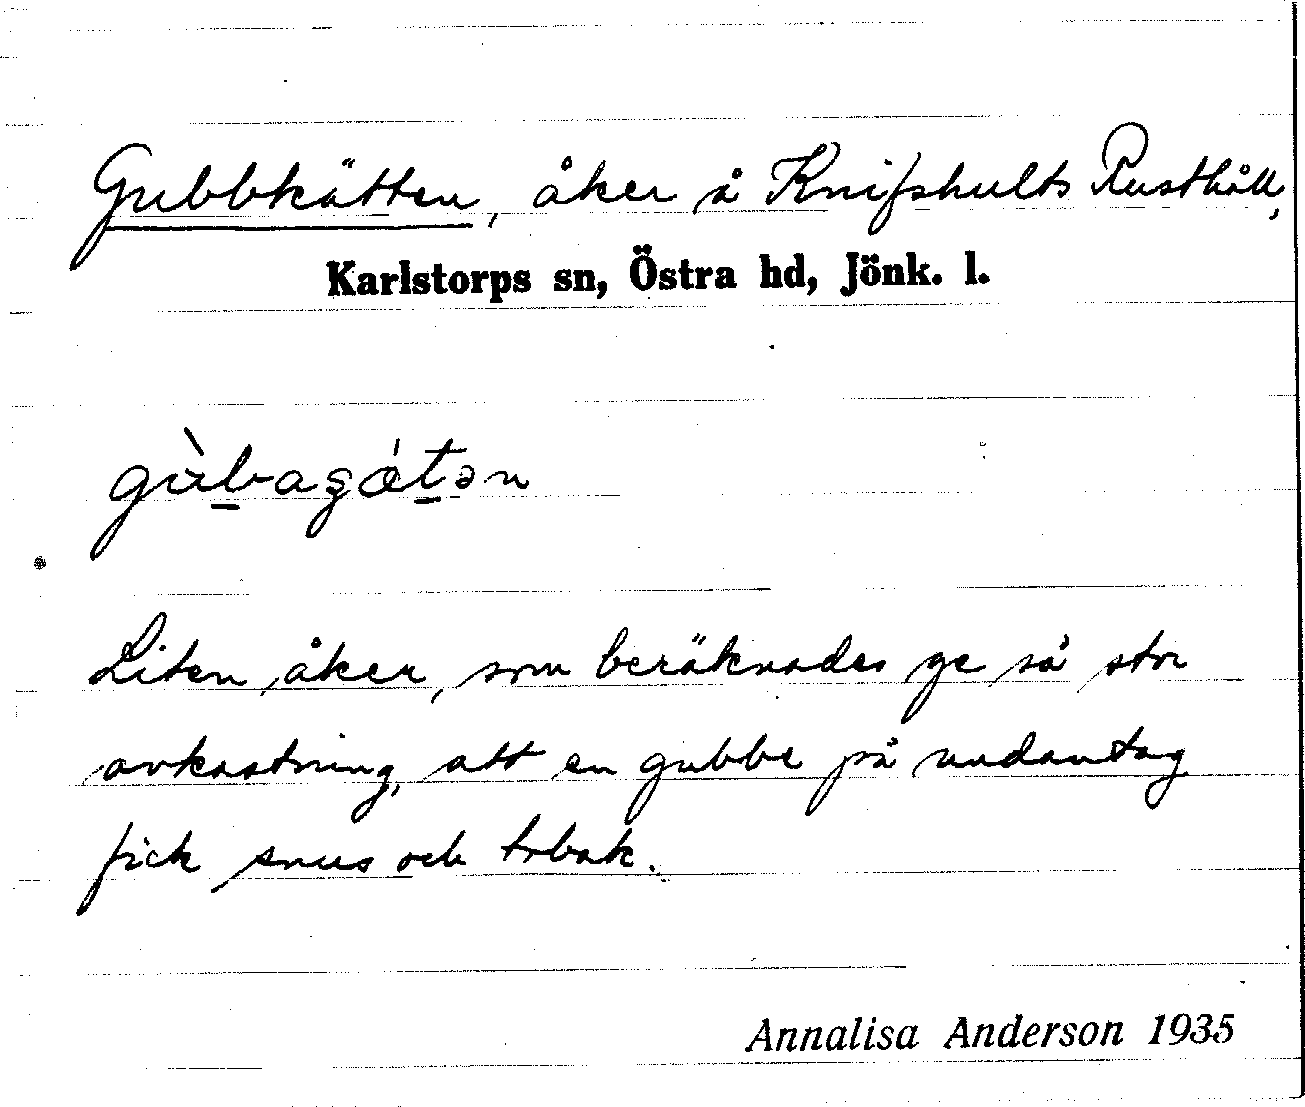 Gubbkätten, åker å Knifshults Rusthåll,
Karlstorps sn, Östra hd, Jönk. l.
gùbagǽtən
Liten åker, som beräknades ge så stor
avkastning, att en gubbe på undantag
fick snus och tobak.
Annalisa Anderson 1935